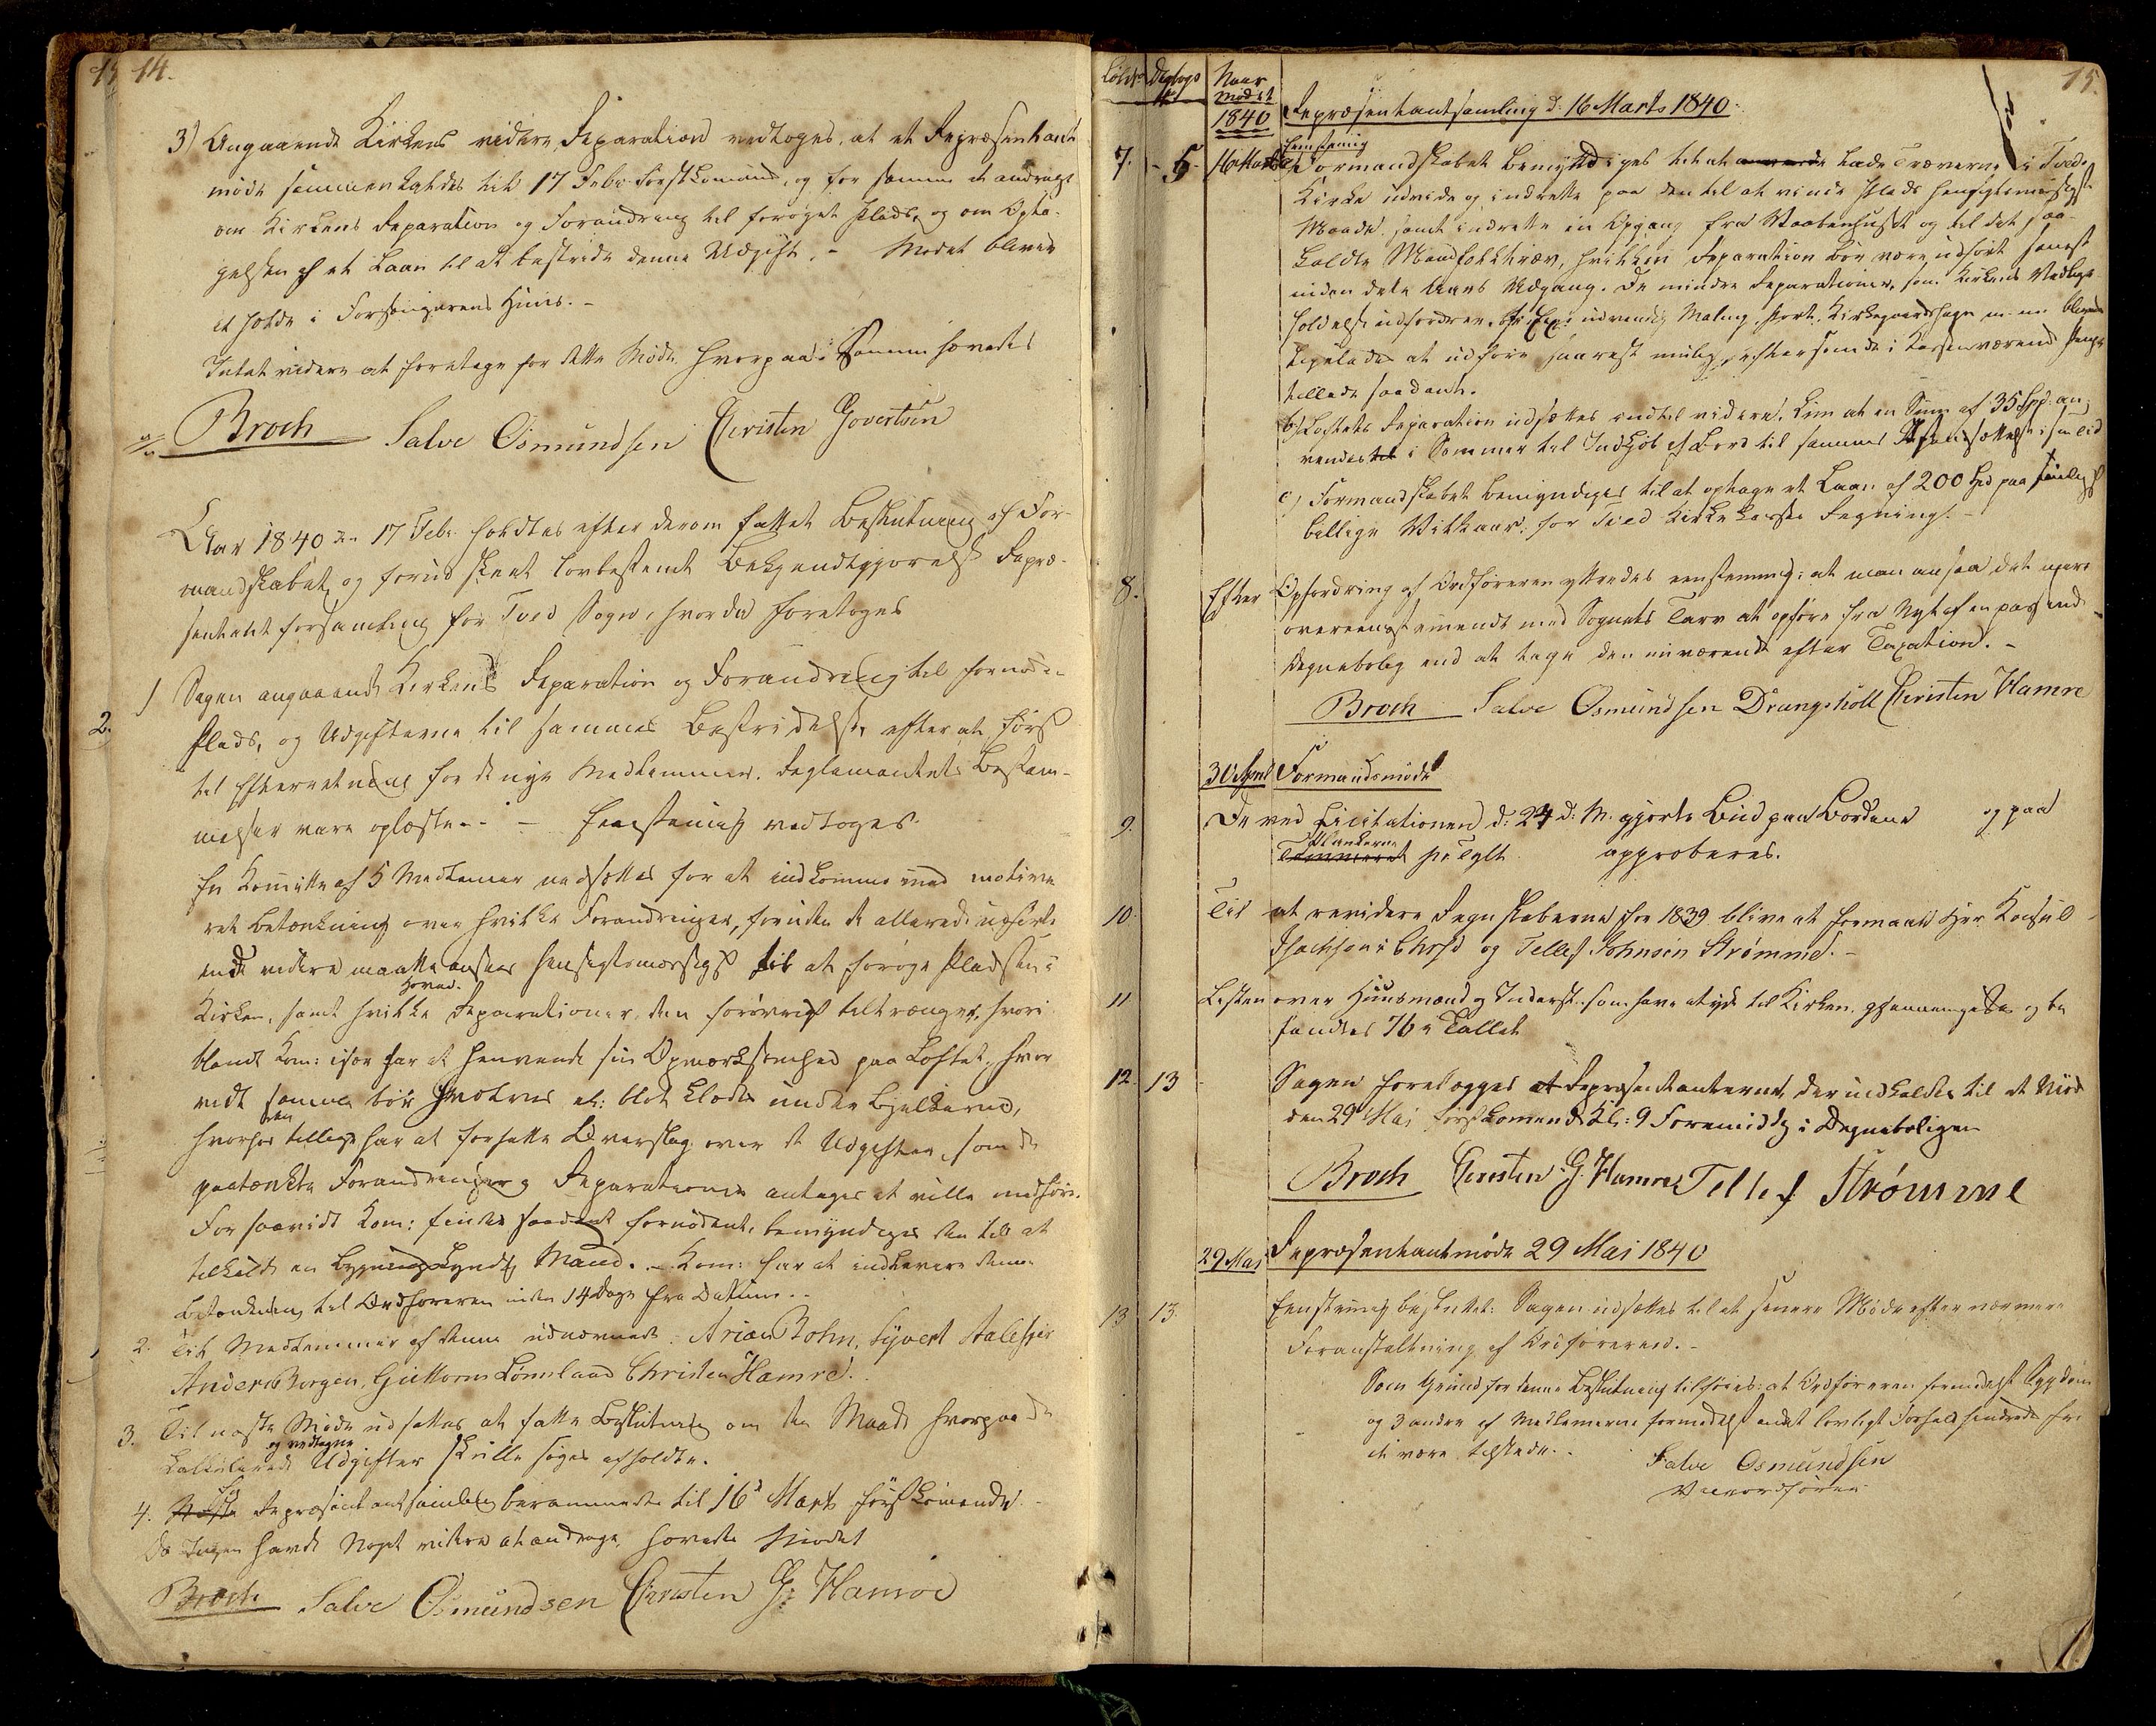 14.
3) Angaaende Kirkens videre Reparation vedtoges, at et Repræsentant
møde sammenkaldes til 17 Febr. førstkommende, og for samme at andrages
om Kirkens Reparation og Forandring til forøget Plads, og om Opta-
gelsen af et Laan til at bestride denne Udgift. - Mødet bliver
at holde i Forsangerens Huus. -
Intet videre at foretage for dette Møde, hvorpaa Samme hævedes
Broch Salve Osmundsen Christen Govertsen
Aar 1840 den 17 Febr. holdtes efter derom fattet Beslutning af For-
mandskabet, og forud skeet lovbestemt Bekjendtgjørelse Repræ-
sentantforsamling for Tved Sogn, hvorda foretoges
2.
1 Sagen angaaende Kirkens Reparation og Forandring til fornøden
Plads, og Udgifterne til sammes Bestridelse, efterat først
til Efterretning for de nye Medlemmer Reglementets Bestem-
melser vare oplæste. - Eenstemig vedtoges
En Komitte af 5 Medlemer nedsættes for at indkomme med motive
ret Betænkning over hvilke Forandringer, foruden de allerede udførte
endvidere maatte ansees hensigtsmæssigst til at forøge Pladsen i
Hoved-
Kirken, samt hvilke Reparationer den forøvrigt tiltrænger, hvori
blandt Kom: især har at henvende sin Opmærksomhed paa Loftet, hvor
vidt samme bør hvælves el: blot klædes under Bjelkerne,
den
hvorhos tillige har at forfatte Overslag over de Udgifter, som de
paatænkte Forandringer og Reparationer antages at ville medføre.
For saavidt Kom: finder saadant fornødent, bemyndiges den til at
tilkalde en bygningskyndig Mand. - Kom: har at indlevere denne
Betænkning til Ordføreren inden 14 Dage fra Datum. -
2. Til Medlemmer af denne udnævnedes: Arian Bohn, Syvert Aalefjær
Anders Borgen, Guttorm Lømsland Christen Hamre.
3. Til næste Møde udsættes at fatte Beslutning om den Maade hvorpaa de
og vedtagne
kalkulerede Udgifter skulle søges afholdte.
4. Næste Repræsentantsamling berammedes til 16de Marts førstkommende.
Da Ingen havde Noget videre at andrage, hævedes Mødet
Broch Salve Osmundsen Christen G. Hamre
15.
Løbe No Dagbogs No Naar Mødet
1840 Repræsentantsamling d: 16 Marts 1840.
Eenstemig
7. 5 16 Marts a) Formandskabet bemyndiges til at lade Træverne i Tveds
Kirke udvide og indrette paa den til at vinde Plads hensigtsmæssigste
Maade, samt indrette en Opgang fra Vaabenhuset og til det saa-
kaldte Mandfolktræv, hvilken Reparation bør være udført senest
inden dete Aars Udgang. De mindre Reparationer, som Kirkens Vedlige-
holdelse udfordrer, for Ex: udvendig Maling, Port, Kirkegaardshage m.m. bliver
ligeledes at udføre saasnart muligt, eftersom de i Kassen værende Penge
tillade saadant.
b) Loftets Reparation udsættes indtil videre. Kun at en Sum af 35 Spd. an-
vendes i Sommer til Indkjøb af Bord til sammes Istandsættelse i sin Tid
c) Formandskabet bemyndiges til at optage et Laan af 200 Spd paa
billige Vilkaar for Tved Kirkekasses Regning. -
8. Efter Opfordring af Ordføreren yttredes eenstemmig: at man ansaa det mere
overeenstemmende med Sognets Tarv at opføre fra Nyt af en passende
Degnebolig end at tage den nuværende efter Taxation. -
Broch Salve Osmundsen Drangsholt Christen Hamre
30 April Formandsmøde
9. De ved Licitationen d: 24 d: M. gjorte Bud paa Bordene og paa
Plankerne
Tømmeret pr Tylt approberes.
10. Til at revidere Regnskaberne for 1839 blive at formaae Hr. Konsul
Isachsen i Chrsd og Tellef Johnsen Strømme. -
11 Listen over Huusmænd og Inderster som have at yde til Kirken, gjennemgikkes og be
fandtes 76 i Tallet
12. 13 Sagen forelægges Repræsentanterne, der indkaldes til et Møde
den 29 Mai førstkommende Kl: 9 Formiddag i Degneboligen
Broch Christen G. Hamre Tellef Strømme
29 Mai Repræsentantmøde 29 Mai 1840
13 13. Eenstemig besluttet: Sagen udsættes til et senere Møde efter nærmere
Foranstaltning af Ordføreren. -
Som Grund for denne Beslutning tilføies: at Ordføreren formedelst Sygdom
og 3 andre af Medlemerne formedelst andet lovligt Forfald hindredes fra
at være tilstede. -
Salve Osmundsen
Viceordfører